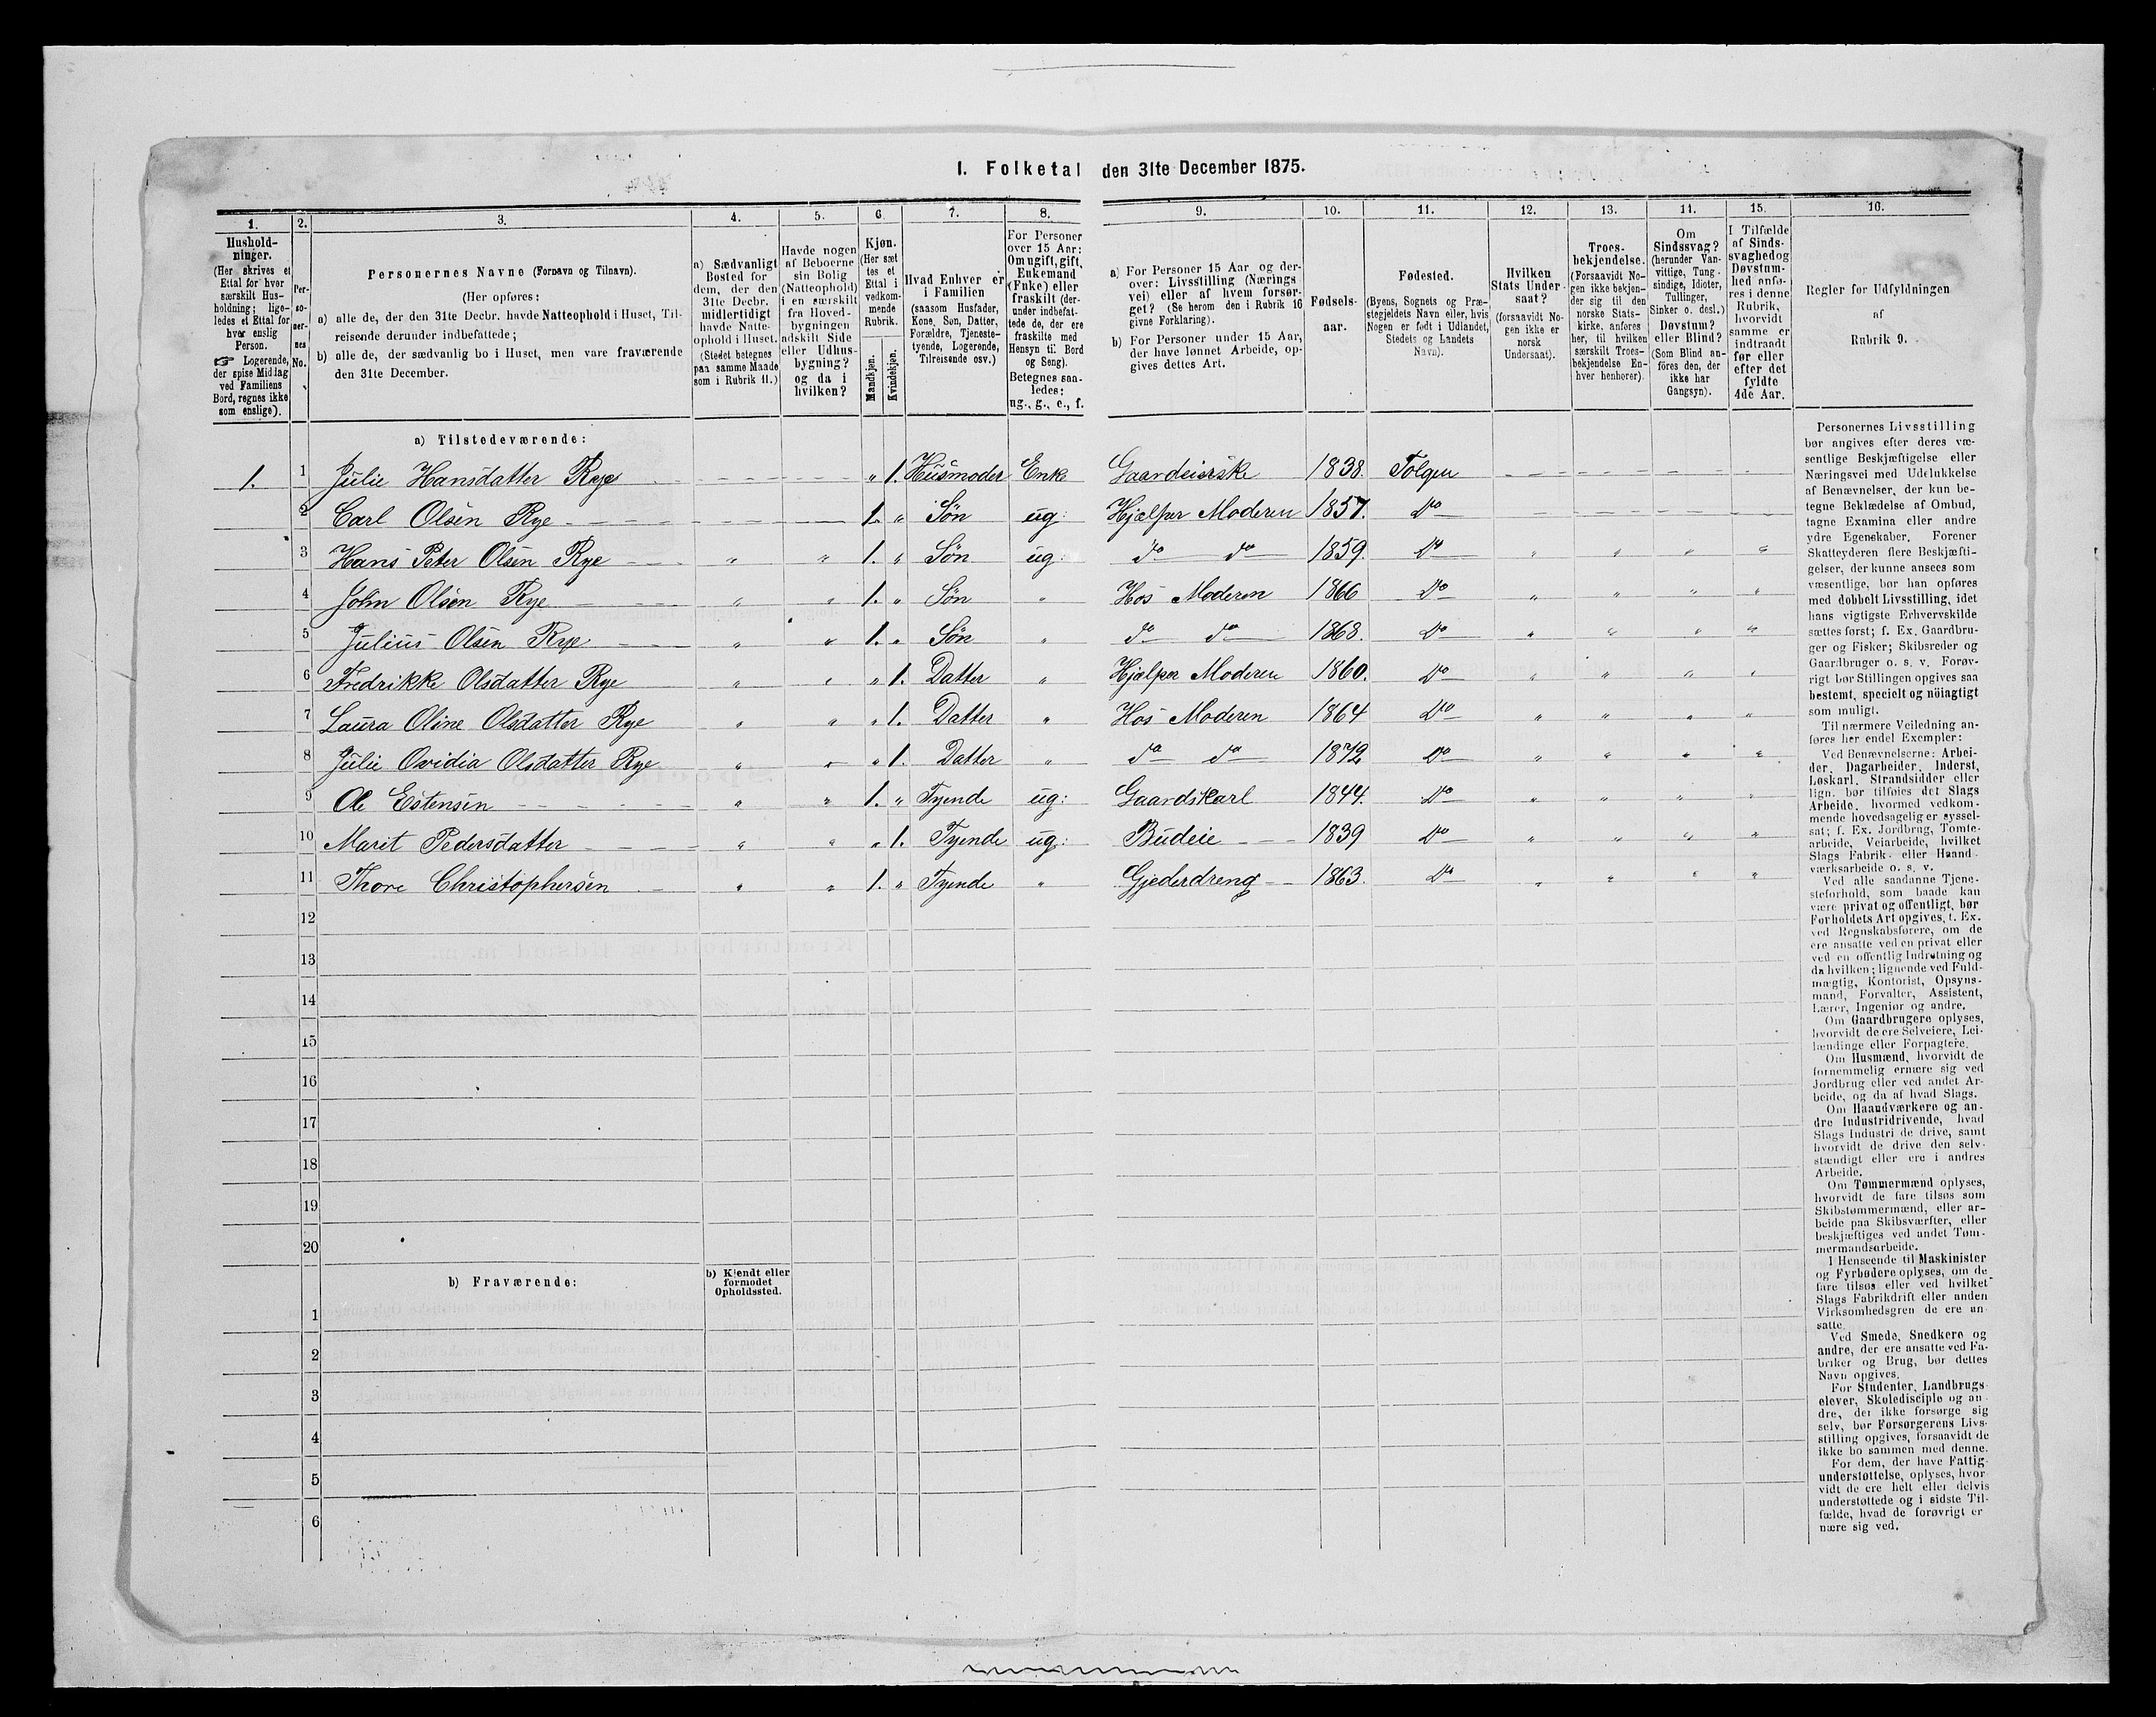 I. Folketal den 31te December 1875.
1. 2. 3. 4. 5. 6. 7. 8. 9. 10. 11. 12. 13. 14. 15. 16.
Hushold-
ninger.
(Her skrives et
Ettal for hver
særskilt Hus-
holdning; lige-
ledes et Ettal for
hver enslig
Person.
☞ Logerende,
der spise Middag
ved Familiens
Bord, regnes ikke
som enslige).
Per-
so-
ner-
nes
No.
Personernes Navne (Fornavn og Tilnavn).
(Her opføres:
a) alle de, der den 31te Decbr. havde Natteophold i Huset, Til-
reisende derunder indbefattede;
b) alle de, der sædvanlig bo i Huset, men vare fraværende
den 31te December.
a) Sædvanligt
Bosted for
dem, der den
31te Decbr.
midlertidigt
havde Natte-
ophold i Huset.
(Stedet betegnes
paa samme Maade
som i Rubrik 11.)
Havde nogen
af Beboerne
sin Bolig
(Natteophold)
i en særskilt
fra Hoved-
bygningen
adskilt Side
eller Udhus-
bygning?
og da i
hvilken?
Kjøn.
(Her sæt
tes et
Ettal i
vedkom-
mende
Rubrik.
Mandkjøn.
Kvindekjøn.
Hvad Enhver er
i Familien
(saasom Husfader,
Kone, Søn, Datter,
Forældre, Tjeneste-
tyende, Logerende,
Tilreisende osv.)
For Personer
over 15 Aar:
Om ugift, gift,
Enkemand
(Enke) eller
fraskilt (der-
under indbefat-
tede de, der ere
fraskilte med
Hensyn til Bord
og Seng).
Betegnes saa-
ledes:
ug., g., e., f.
a) For Personer 15 Aar og der-
over: Livsstilling (Nærings
vei) eller af hvem forsør-
get? (Se herom den i Rubrik 16
givne Forklaring).
b) For Personer under 15 Aar,
der have lønnet Arbeide, op-
gives dettes Art.
Fødsels-
aar.
Fødested.
(Byens, Sognets og Præ-
stegjeldets Navn eller, hvis
Nogen er født i Udlandet,
Stedets og Landets
Navn).
Hvilken
Stats Under-
saat?
(forsaavidt No-
gen ikke er
norsk
Undersaat).
Troes-
bekjendelse.
(Forsaavidt No-
gen ikke bekjen-
der sig til den
norske Stats-
kirke, anføres
her, til hvilken
særskilt Troes-
bekjendelse En-
hver henhorer).
Om
Sindssvag?
(herunder Van-
vittige, Tung-
sindige, Idioter,
Tullinger,
Sinker o. desl.)
Døvstum?
eller Blind?
(Som Blind an-
føres den, der
ikke har
Gangsyn).
I Tilfælde
af Sinds-
svaghed og
Døvstum-
hed anfø-
res i denne
Rubrik,
hvorvidt
samme er
indtraadt
før eller
efter det
fyldte
4de Aar.
Regler for Udfyldningen
af
Rubrik 9.
a) Tilstedeværende:
1. 1 Julie Hansdatter Rye „ 1. Husmoder Enke Gaardeierske 1838. Tolgen
2 Carl Olsen Rye 1. „ Søn ug: Hjælper Moderen 1857. Do
3 Hans Peter Olsen Rye „ „ 1. „ Søn ug: do do 1859. Do „ „ „ „
4 John Olsen Rye „ „ 1. „ Søn „ Hos Moderen 1866 Do „ „ „ „
5 Julius Olsen Rye „ „ 1. „ Søn „ do do 1868. Do „ „ „ „
6 Fredrikke Olsdatter Rye „ „ „ 1. Datter „ Hjælper Moderen 1860. Do „ „ „ „
7 Laura Oline Olsdatter Rye „ „ „ 1. Datter „ Hos Moderen 1864 Do „ „ „ „
8 Julie Ovidia Olsdatter Rye „ „ „ 1. Datter „ do do 1872 Do „ „ „ „
9 Ole Estensen „ „ 1. „ Tyende ug: Gaardskarl 1844. Do „ „ „ „
10 Marit Pedersdatter „ „ „ 1. Tyende ug: Budeie 1839 Do „ „ „ „
11 Thore Christophersen „ „ 1. „ Tyende „ Gjederdreng 1863. Do „ „ „ „
12
13
14
15
16
17
18
19
20
b) Fraværende:
b) Kjendt eller
formodet
Opholdssted.
1
2
3
4
5
6
Personernes Livsstilling
bør angives efter deres væ-
sentlige Beskjæftigelse eller
Næringsvei med Udelukkelse
af Benævnelser, der kun be-
tegne Beklædelse af Ombud,
tagne Examina eller andre
ydre Egenskaber. Forener
Skatteyderen flere Beskjæfti-
gelser, der kunne ansees som
væsentlige, bør han opføres
med dobbelt Livsstilling, idet
hans vigtigste Erhvervskilde
sættes først; f. Ex. Gaardbru-
ger og Fisker; Skibsreder og
Gaardbruger o. s. v. Forøv-
rigt bør Stillingen opgives saa
bestemt, specielt og nöiagtigt
som muligt.
Til nærmere Veiledning an-
føres her endel Exempler:
Ved Benævnelserne: Arbei-
der, Dagarbeider, Inderst,
Løskarl, Strandsidder eller
lign. bør tilføies det Slags
Arbeide, hvormed vedkom-
mende hovedsagelig er syssel-
sat; f. Ex. Jordbrug, Tomte-
arbeide, Veiarbeide, hvilket
Slags Fabrik- eller Haand-
værksarbeide o. s. v.
Ved alle saadanne Tjene-
steforhold, som baade kan
være privat og offentligt, bør
Forholdets Art opgives, f. Ex.
ved Regnskabsførere, om de
ere ansatte ved en privat eller
ved en offentlig Indretning og
da hvilken; lignende ved Fuld-
mægtig, Kontorist, Opsyns-
mand, Forvalter, Assistent,
Lærer, Ingeniør og andre.
Om Gaardbrugere oplyses,
hvorvidt de ere Selveiere, Lei-
lændinge eller Forpagtere.
Om Husmænd, hvorvidt de
fornemmelig ernære sig ved
Jordbrug eller ved andet Ar-
beide, og da af hvad Slags.
Om Haandværkere og an-
dre Industridrivende, hvad
Slags Industri de drive, samt
hvorvidt de drive den selv-
stændigt eller ere i andres
Arbeide.
Om Tømmermænd oplyses,
hvorvidt de fare tilsøs som
Skibstømmermænd, eller ar-
beide paa Skibsværfter, eller
beskjæftiges ved andet Tøm-
mermandsarbeide.
I Henseende til Maskinister
og Fyrbødere oplyses, om de
fare tilsøs eller ved hvilket
Slags Fabrikdrift eller anden
Virksomhedsgren de ere an
satte.
Ved Smede, Snedkere og
andre, der ere ansatte ved Fa-
briker og Brug, bør dettes
Navn opgives.
For Studenter, Landbrugs
elever, Skoledisciple og an-
dre, der ikke forsørge sig
selv, bør Forsørgerens Livs-
stilling opgives, forsaavidt de
ikke bo sammen med denne.
For dem, der have Fattig-
understøttelse, oplyses, hvor-
vidt de ere helt eller delvis
understøttede og i sidste Til-
fælde, hvad de forøvrigt er
nære sig ved.